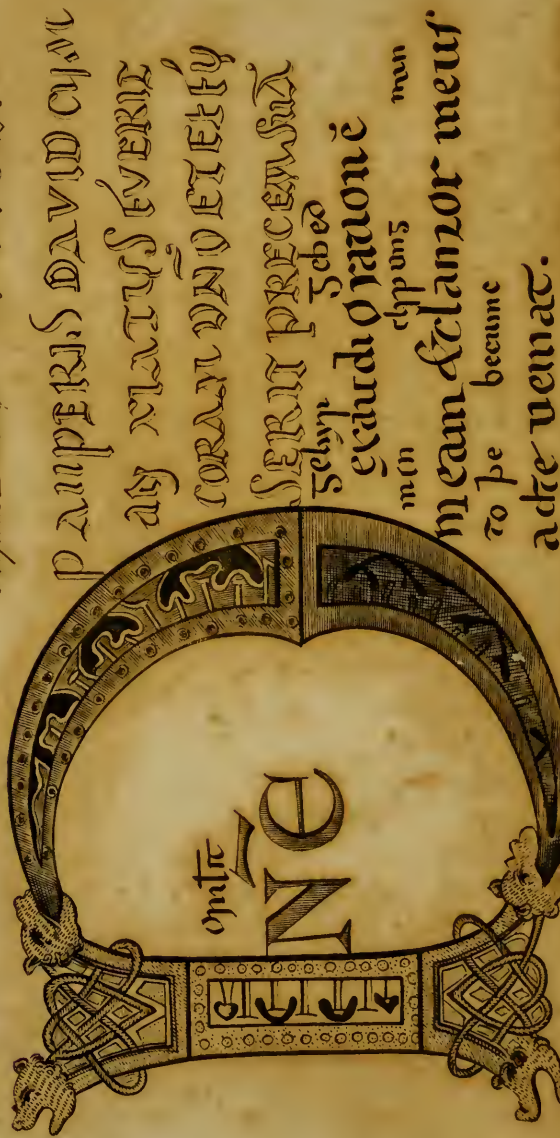 PAUPERIS DAVID CUM
ANXIATUS FUERIT
CORAM DÑO ET EFFU
SERIT PRECEM SUĀ
DNĒ
gehyr gebed
exaudi orationē
min clypung min
meam & clamor meus
to þe becume
ad te ueniat.